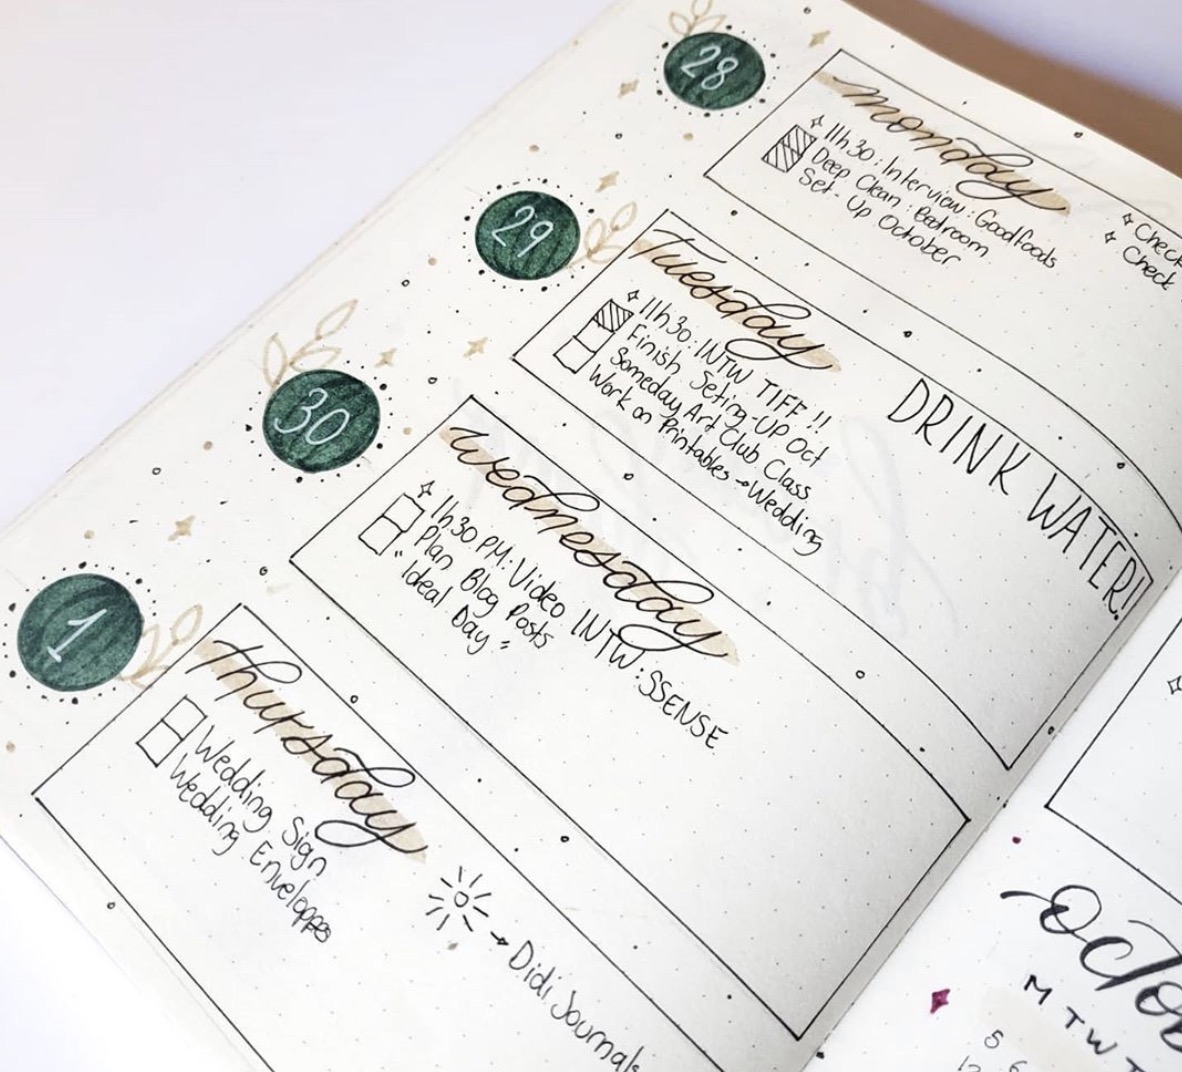 28
monday
11h30: Interview: Goodfoods
Deep Clean: Bedroom
Set-Up October
Check
Check
29
Tuesday
11h30: INTW TIFF!!
Finish Seting-UP Oct
Someday Art Club Class
Work on Printables → Wedding
DRINK WATER!!
30
wednesday
11h30 PM: Video INTW: SSENSE
Plan Blog Posts
"Ideal Day"
1
thursday
Wedding Sign
Wedding Envelopes
→ Didi Journals
Octob
M T W T
5 6
12